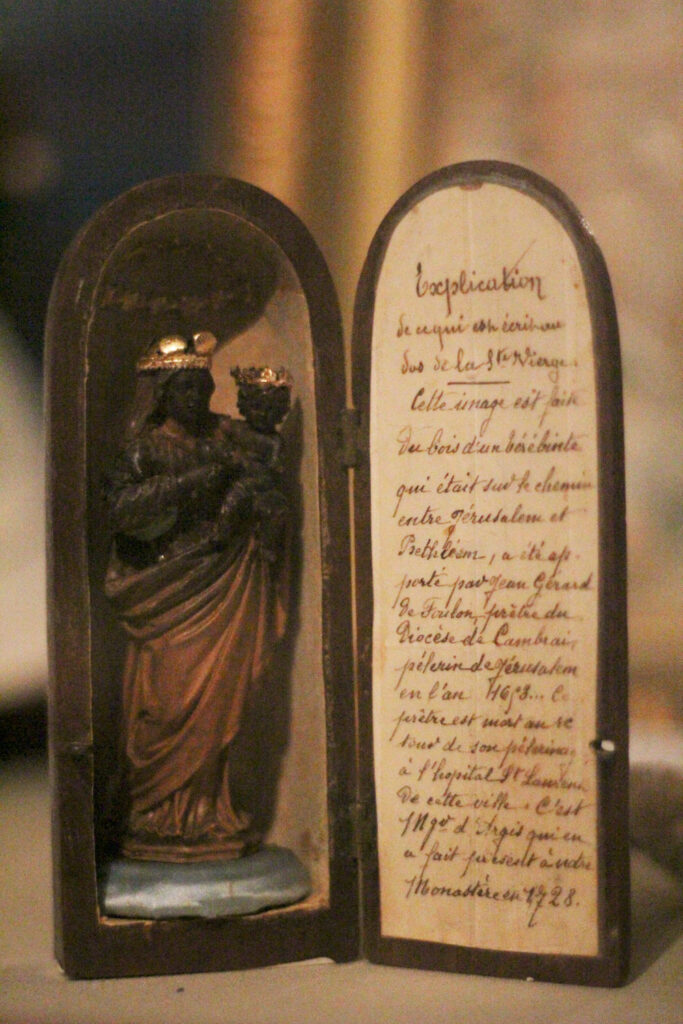 Explication
de ce qui est écrit au
dos de la Ste Vierge.
Cette image est faite
du bois d'un térébinte
qui était sur le chemin
entre Jérusalem et
Bethléem, a été ap-
porté par Jean Gérard
de Foulon, prêtre du
Diocèse de Cambrai,
pélerin de Jérusalem
en l'an 1653... Ce
prêtre est mort au re
tour de son pélerinag
à l'hopital St Laurent
De cette ville. C'est
Mgr d'Argis qui en
a fait présent à notre
Monastère en 1728.